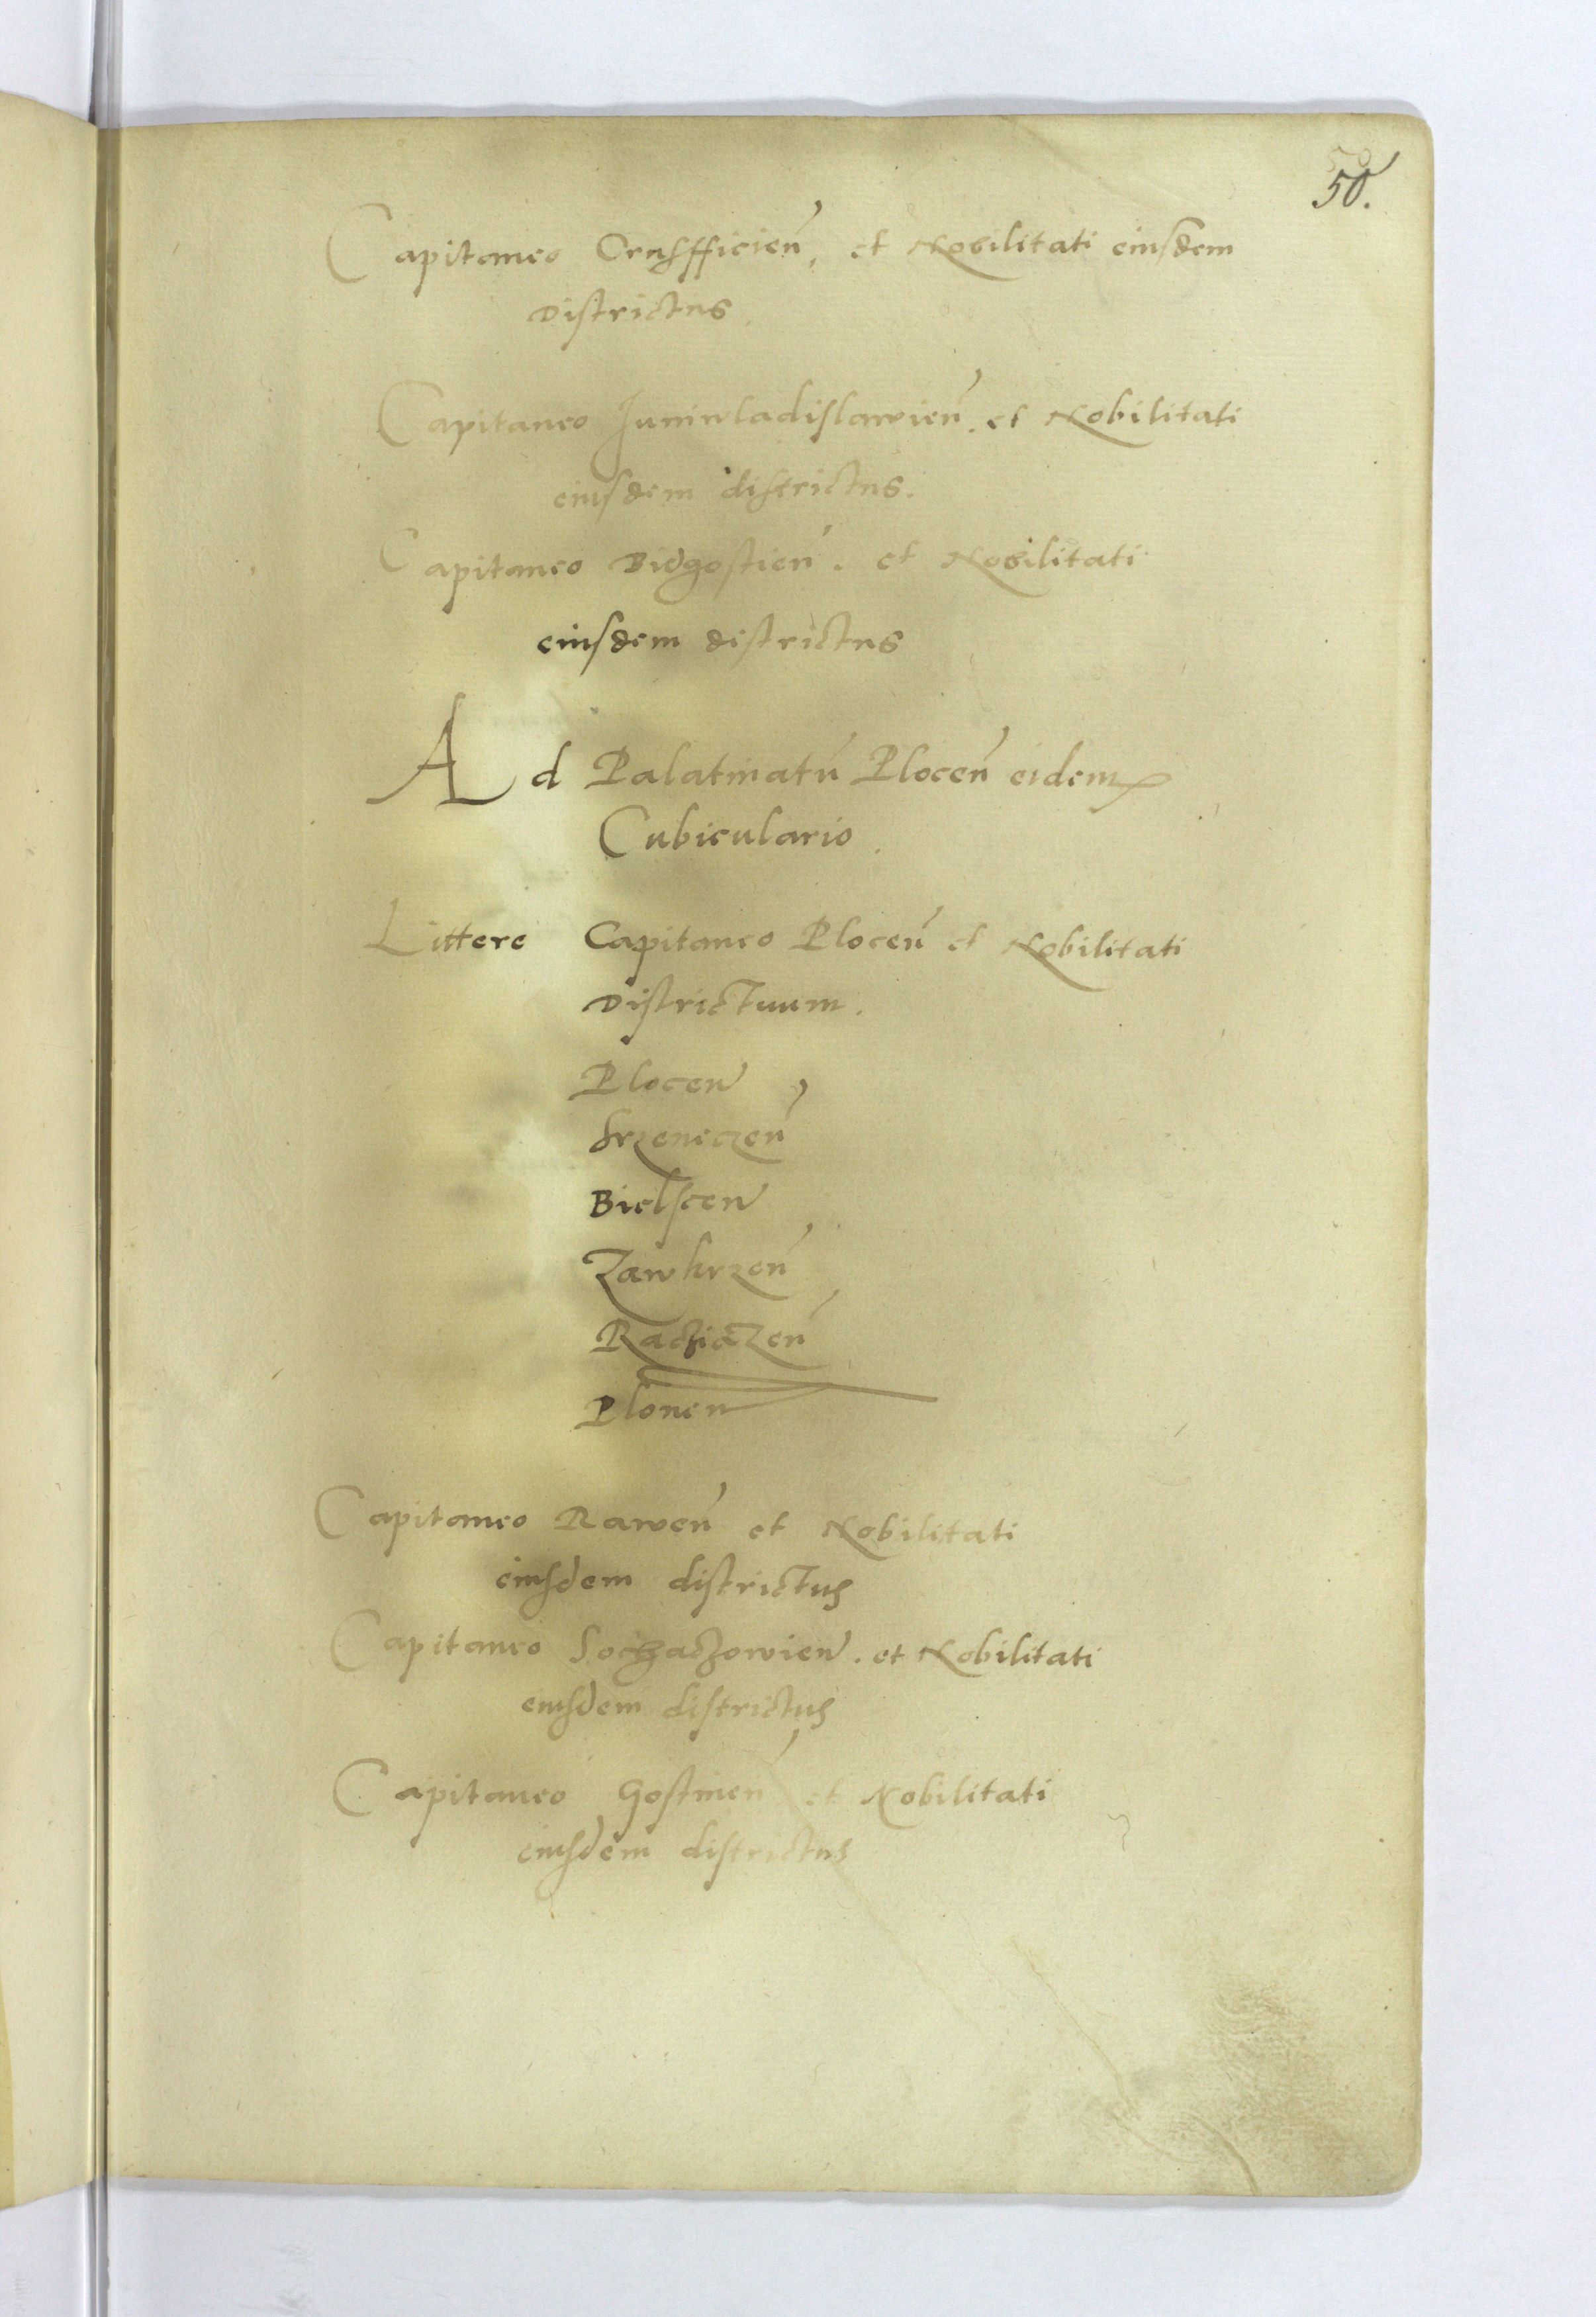 50.
Capitaneo Crusfficien̄, et Nobilitati eiusdem
Districtus.
Capitaneo Juniuladislawien̄. et Nobilitati
eiusdem districtus.
Capitaneo Bidgostien̄. et Nobilitati
eiusdem districtus
Ad Palatinatū Plocen̄ eidem
Cubiculario.
Littere Capitaneo Plocen̄ et Nobilitati
Districtuum.
Plocen̄
Srzeneczen̄
Bielscen̄
Zawkrzen̄
Racziązen̄
Plonen̄
Capitaneo Rawen̄ et Nobilitati
eiusdem districtus
Capitaneo Sochaczowien̄. et Nobilitati
eiusdem districtus
Capitaneo Gostinen̄ et Nobilitati
eiusdem districtus